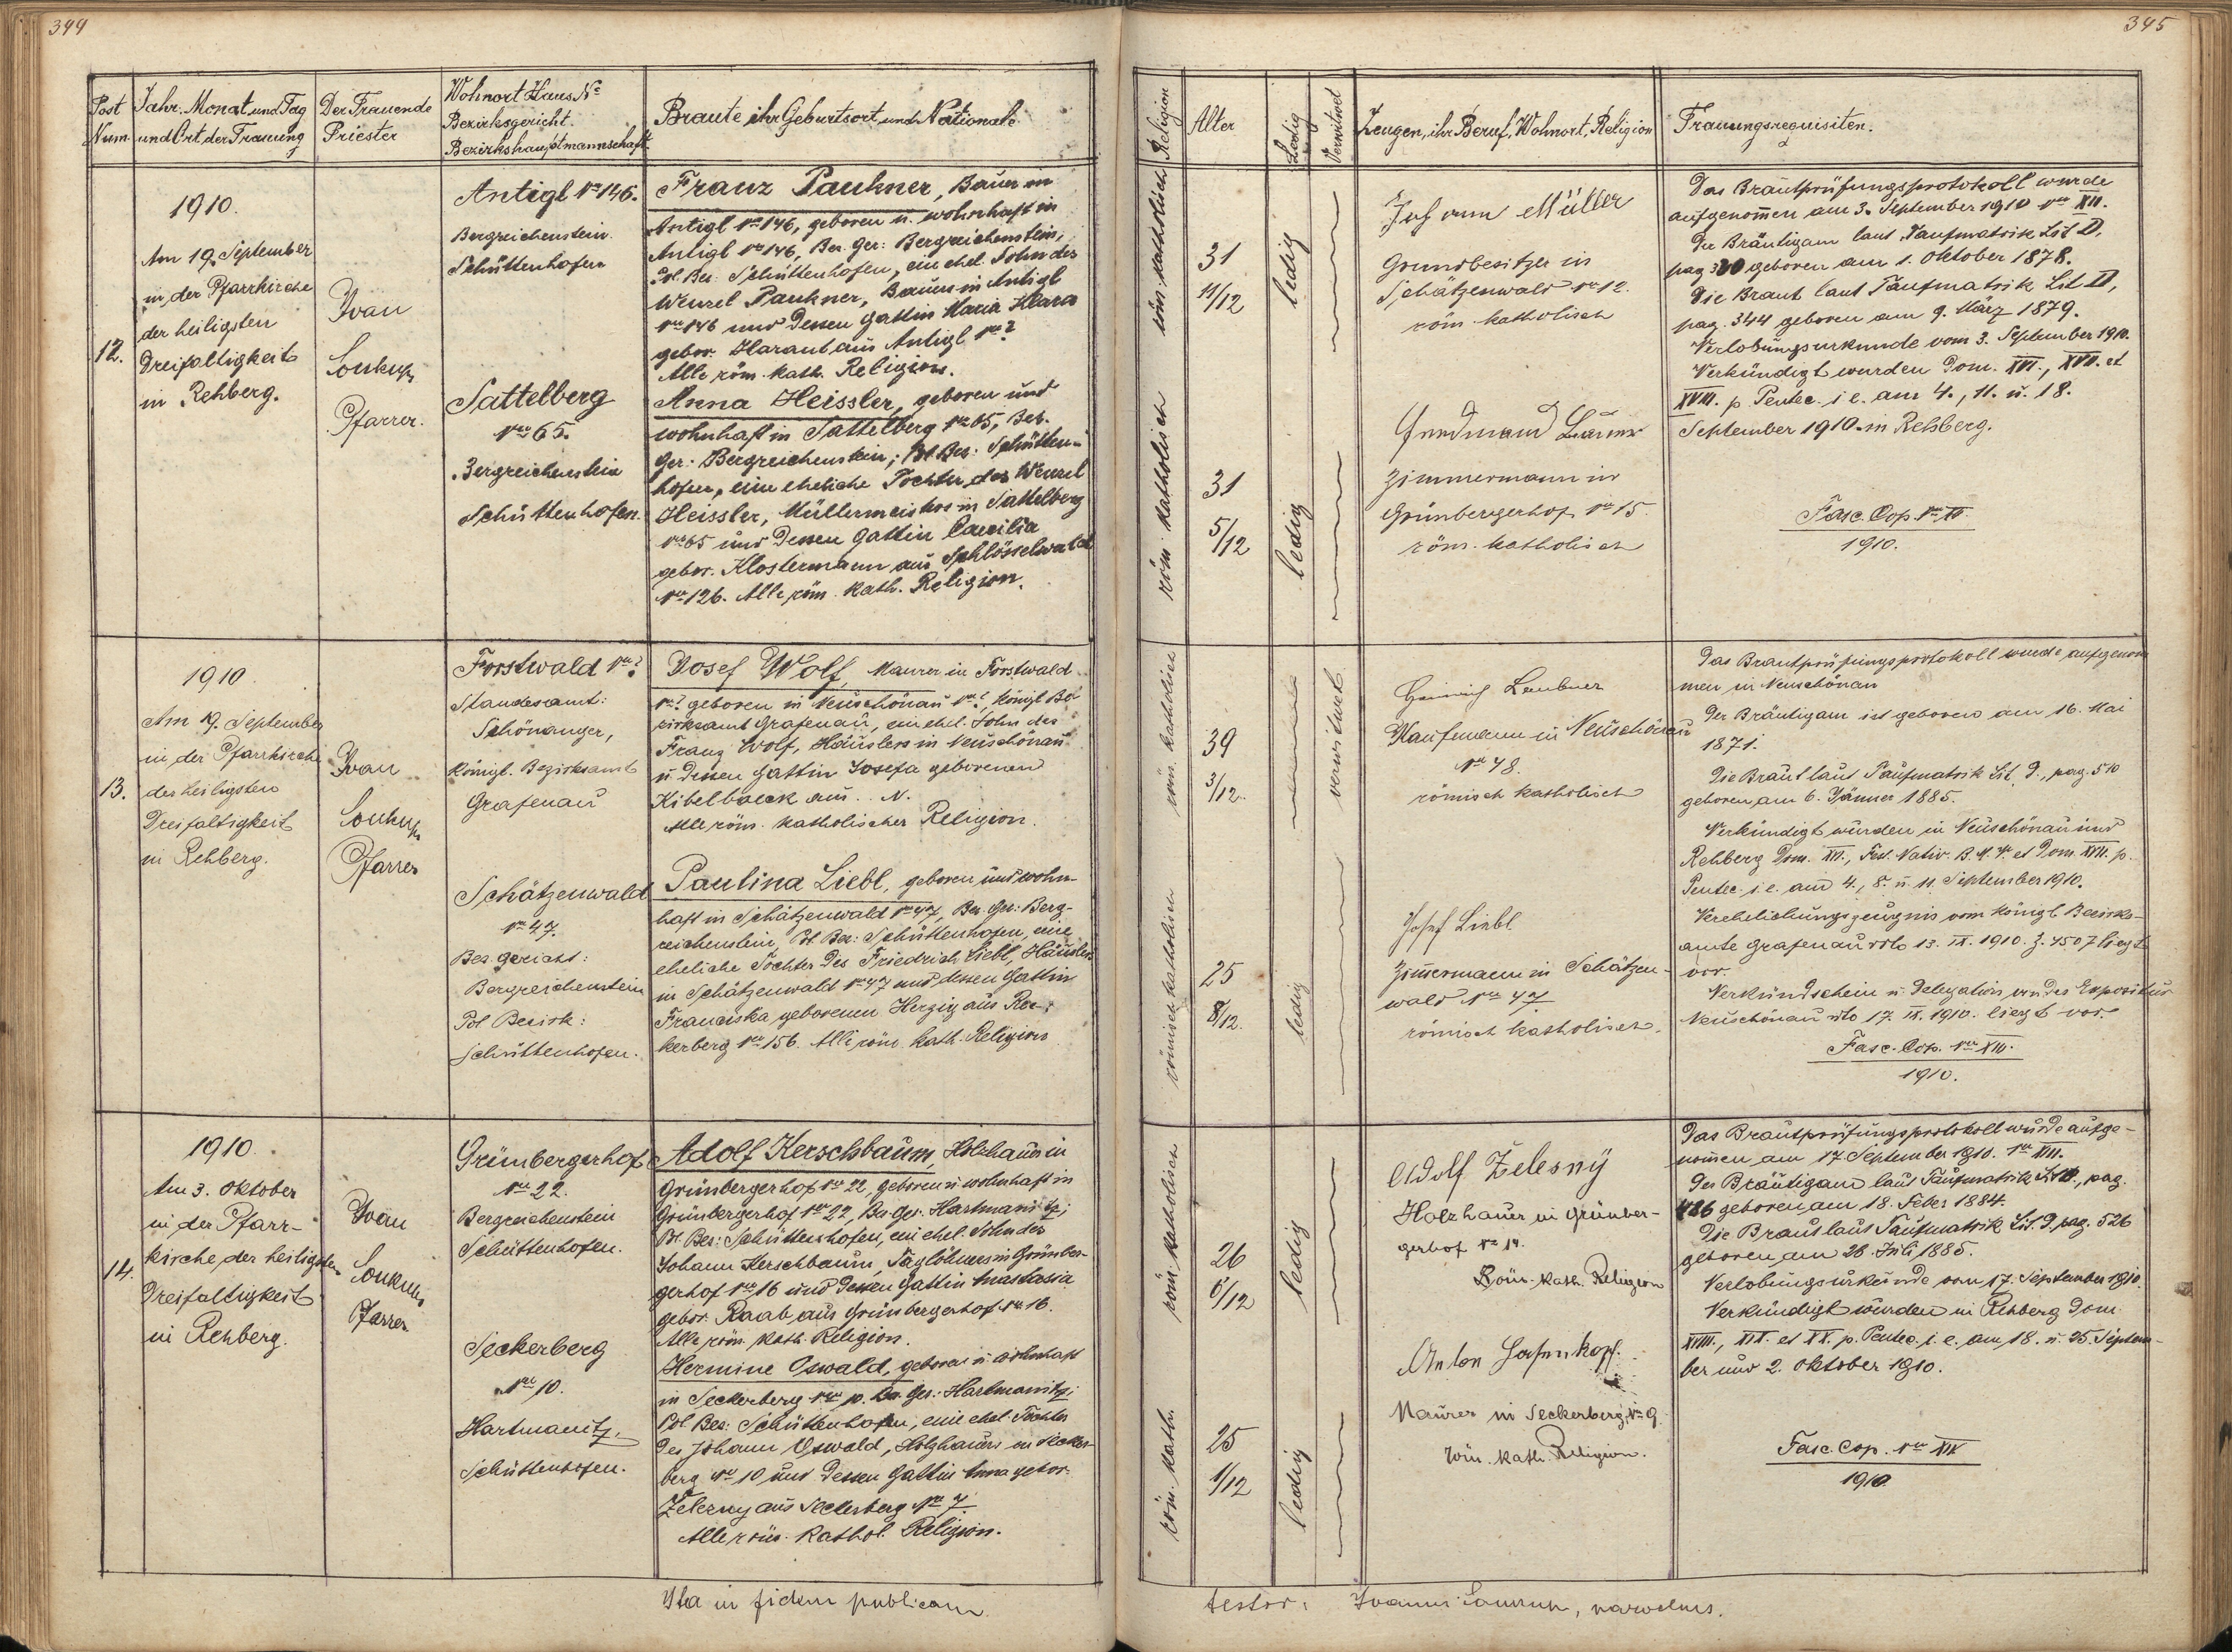 344
345
Post Num.
Jahr. Monat und Tag
und Ort der Trauung
Der Trauende
Priester
Wohnort Haus No
Bezirksgericht.
Bezirkshauptmannschaft
Braute ihr Geburtsort und Nationale
Religion
Alter
Ledig
Verwitwet
Zeugen, ihr Beruf, Wohnort, Religion
Trauungsrequisiten.
12.
1910.
Am 19. September
in der Pfarrkirche
der heiligsten
Dreifaltigkeit
in Rehberg.
Ivan
Soukup
Pfarrer.
Antigl No 146.
Bergreichenstein.
Schüttenhofen
Sattelberg
Nro 65.
Bergreichenstein
Schüttenhofen.
Franz Paukner, Bauer in
Antigl No 146, geboren u. wohnhaft in
Antigl No 146, Bez. Ger: Bergreichenstein,
Pol. Bez: Schüttenhofen, ein ehel. Sohn des
Wenzel Paukner, Bauers in Antigl
Nro 146 und dessen Gattin Maria Klara
gebor. Haraut aus Antigl No ?
Alle röm. kath. Religion.
Anna Heissler, geboren und
wohnhaft in Sattelberg No 65, Bez.
Ger: Bergreichenstein; Pol. Bez: Schütten-
hofen, eine eheliche Tochter des Wenzel
Heissler, Müllermeisters in Sattelberg
No 65 und dessen Gattin Caecilia
gebor. Klostermann aus Schlösselwald
No 126. Alle röm. kath. Religion.
röm. katholisch
31
11/12
ledig
röm. katholisch
31
5/12
ledig
Johann Müller
Grundbesitzer in
Schätzenwald No 12.
röm. katholisch
Zimmermann in
Grünbergerhof No 15.
röm. katholisch
Das Brautprüfungsprotokoll wurde
aufgenommen am 3. September 1910 Nro XII.
Der Bräutigam laut Taufmatrik Lit D,
pag 320 geboren am 1. Oktober 1878.
Die Braut laut Taufmatrik Lit D,
pag. 344 geboren am 9. März 1879.
Verlobungsurkunde vom 3. September 1910.
Verkündigt wurden Dom. XVI., XVII. et
XVIII. p. Pentec. i e. am 4., 11. u. 18.
September 1910 in Rehberg.
Fasc. Cop. Nro
1910.
13.
1910
Am 19. September
in der Pfarrkirche
der heiligsten
Dreifaltigkeit
in Rehberg.
Ivan
Soukup
Pfarrer
Forstwald No ?
Standesamt:
Schönanger,
Königl. Bezirksamt
Grafenau
Schätzenwald
No 47.
Bez. gericht:
Bergreichenstein
Pol Bezirk:
Schüttenhofen.
Josef Wolf, Maurer in Forstwald
No ? geboren in Neuschönau No ?, königl Be-
zirksamt Grafenau, ein ehel. Sohn des
Franz Wolf, Häuslers in Neuschönau
u. dessen Gattin Josefa geborenen
Kibelbaeck aus .. N.
Alle röm. katholischer Religion.
Paulina Liebl, geboren und wohn-
haft in Schätzenwald No 47, Bez. Ger: Berg-
reichenstein, Pol. Bez: Schüttenhofen, eine
eheliche Tochter des Friedrich Liebl, Häuslers
in Schätzenwald No 47 und dessen Gattin
Franciska geborenen Herzig aus Rec-
kerberg No 156. Alle röm. kath. Religion
röm. katholisch
39
3/12.
verwitwet
römisch katholisch
25
8/12.
ledig
Heinrich Leubner
Kaufmann in Neuschönau
No 48.
römisch katholisch
Josef Liebl
Zimmermann in Schätzen-
wald No 47
römisch katholisch.
Das Brautprüfungsprotokoll wurde aufgenom
men in Neuschönau
Der Bräutigam ist geboren am 16. Mai
1871.
Die Braut laut Taufmatrik Lit. D., pag. 510
geboren am 6. Jänner 1885.
Verkündigt wurden in Neuschönau und
Rehberg Dom. XVI., Fest. Nativ. B. M. V. et Dom. XVII. p.
Pentec. i. e. am 4., 8. u. 11. September 1910.
Verehelichungszeugnis vom königl. Bezirks-
amte Grafenau dto 13. IX. 1910. Z. 4507 liegt
vor.
Verkündschein u. Delegation von der Expositur
Neuschönau dto 17. IX. 1910. liegt vor.
Fasc. Cop. Nro XIII.
1910.
14.
1910.
Am 3. Oktober
in der Pfarr-
kirche der heiligsten
Dreifaltigkeit
in Rehberg.
Ivan
Soukup
Pfarrer
Grünbergerhof
No 22.
Bergreichenstein
Schüttenhofen.
Seckerberg
Nro 10.
Hartmanitz.
Schüttenhofen.
Adolf Kerschbaum, Holzhauer in
Grünbergerhof No 22, geboren u. wohnhaft in
Grünbergerhof No 22, Bez. Ger. Hartmanitz;
Pol. Bez: Schüttenhofen, ein ehel. Sohn des
Johann Kerschbaum, Taglöhners in Grünber-
gerhof No 16 und dessen Gattin Anastasia
gebor. Raab aus Grünbergerhof No 16.
Alle röm. kath. Religion.
Hermine Oswald, geboren u. wohnhaft
in Seckerberg No 10. Bez. Ger: Hartmanitz;
Pol Bez: Schüttenhofen, eine ehel. Tochter
des Johann Oswald, Holzhauers in Secker-
berg No 10 und dessen Gattin Anna gebor.
Zelezny aus Seckerberg No 7
Alle röm. kathol. Religion.
röm. katholisch
26
ledig
röm. kath.
25
1/12
ledig
Adolf Zelesný
Holzhauer in Grünber-
gerhof No 14.
Röm. kath. Religion
Anton
Maurer in Seckerberg No 9.
röm. kath. Religion.
Das Brautprüfungsprotokoll wurde aufge-
nommen am 17. September 1910. No XIII.
Der Bräutigam laut Taufmatrik Lit D., pag.
486 geboren am 18. Feber 1884.
Die Braut laut Taufmatrik Lit. D, pag. 526
geboren am 28. Juli 1885.
Verlobungsurkunde vom 17. September 1910.
Verkündigt wurden in Rehberg Dom.
XVIII., XIX. et XX. p. Pentec. i. e. am 18. u. 25. Septem-
ber und 2. Oktober 1910.
Fasc. Cop. Nro XIV
1910
Ita in fidem publicam
testor: